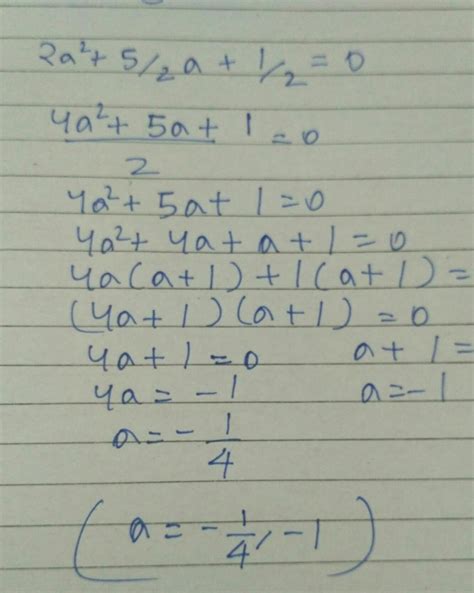 2a² + 5/2 a + 1/2 = 0
4a² + 5a + 1 = 0
2
4a² + 5a + 1 = 0
4a² + 4a + a + 1 = 0
4a(a+1) + 1(a+1) =
(4a+1)(a+1) = 0
4a + 1 = 0 a + 1 =
4a = -1 a = -1
a = - 1/4
(a = - 1/4, -1)